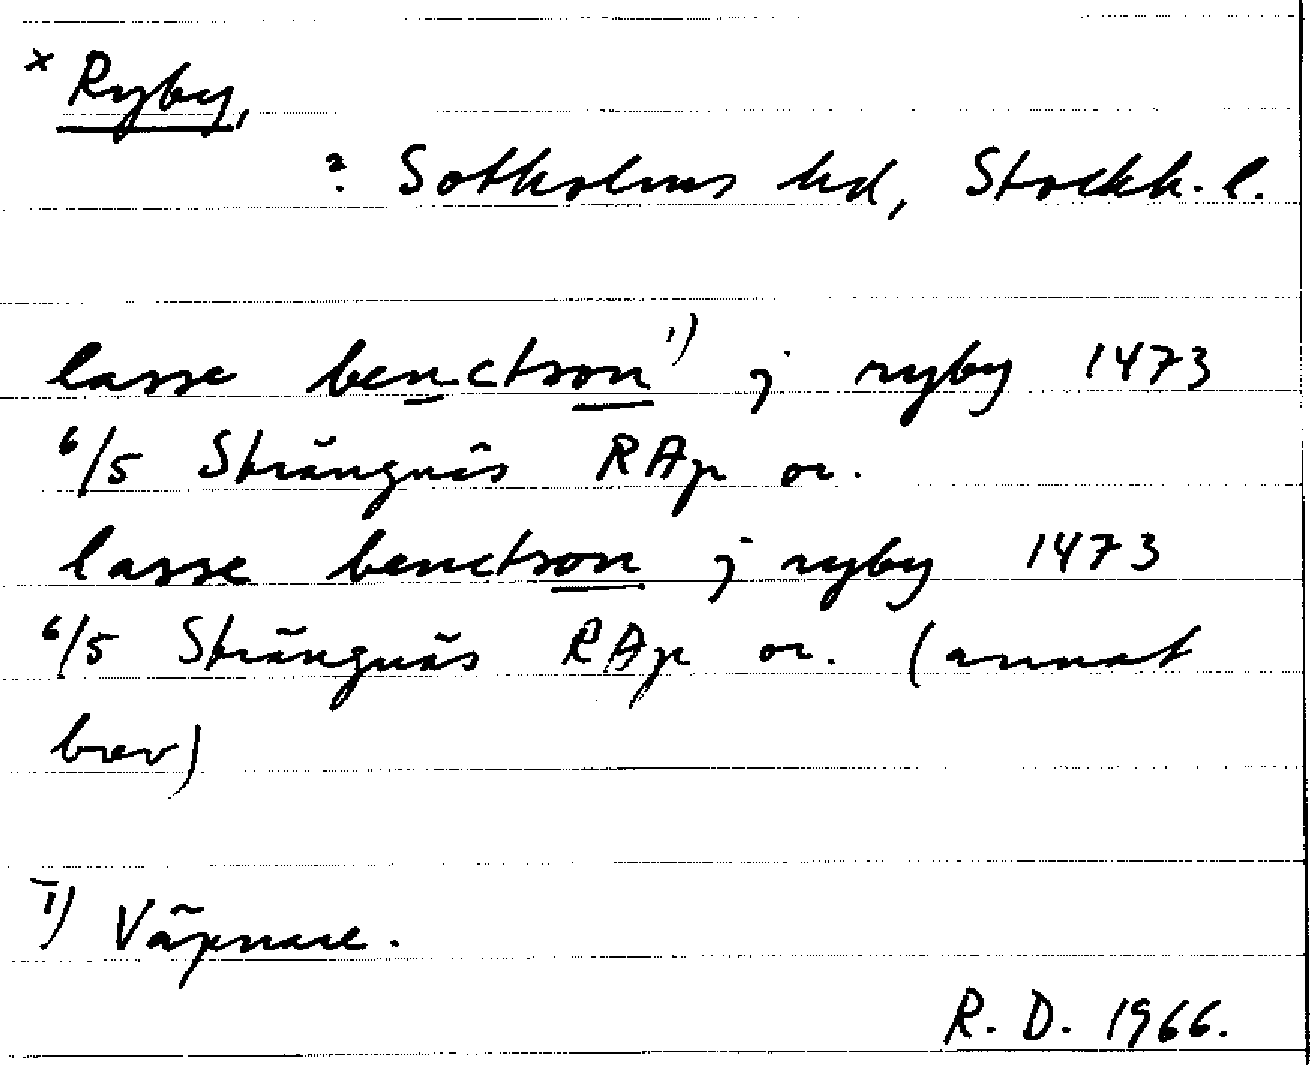 × Ryby,
? Sotholms hd, Stockh. l.
lasse benctson 1) j ryby 1473
6/5 Strängnäs RAp or.
lasse benctson j ryby 1473
6/5 Strängnäs RAp or. (annat
brev)
1) Väpnare.
R. D. 1966.